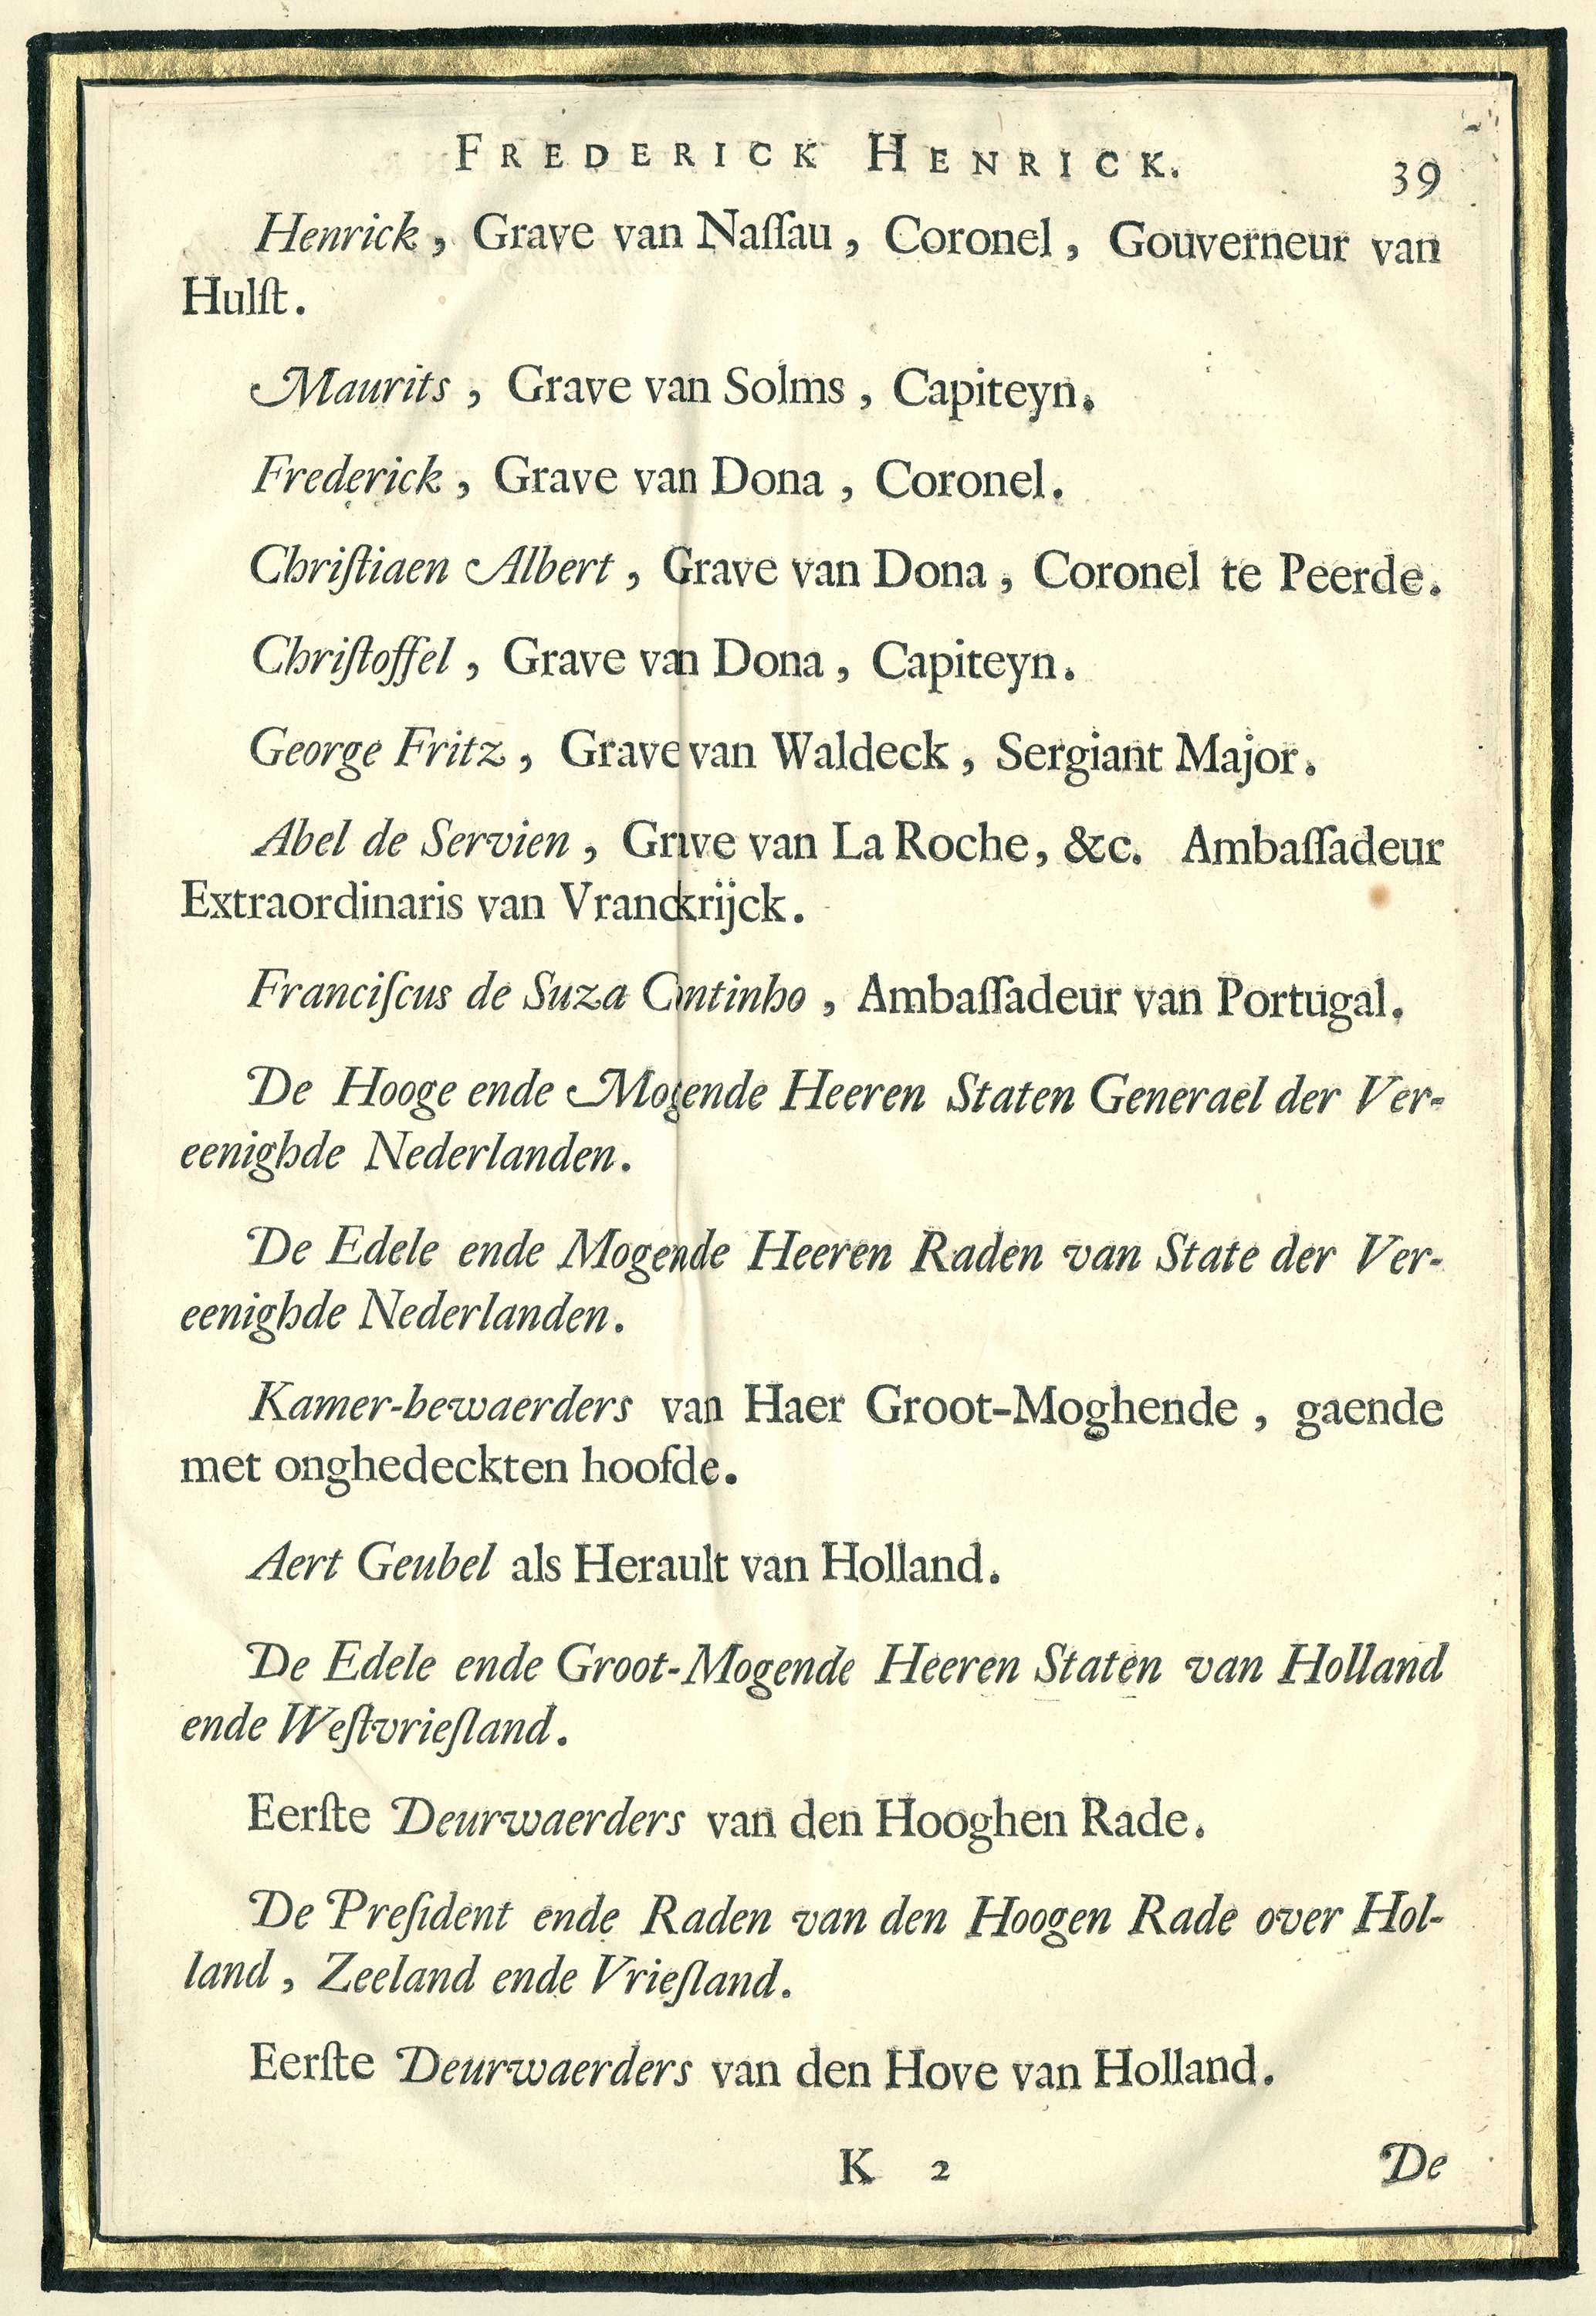 FREDERICK HENRICK.
39
Henrick, Grave van Naſſau, Coronel, Gouverneur van
Hulſt.
Maurits, Grave van Solms, Capiteyn.
Frederick, Grave van Dona, Coronel.
Chriſtiaen Albert, Grave van Dona, Coronel te Peerde.
Chriſtoffel, Grave van Dona, Capiteyn.
George Fritz, Grave van Waldeck, Sergiant Major.
Abel de Servien, Grave van La Roche, &c. Ambaſſadeur
Extraordinaris van Vranckrijck.
Franciſcus de Suza Continho, Ambaſſadeur van Portugal.
De Hooge ende Mogende Heeren Staten Generael der Ver-
eenighde Nederlanden.
De Edele ende Mogende Heeren Raden van State der Ver-
eenighde Nederlanden.
Kamer-bewaerders van Haer Groot-Moghende, gaende
met onghedeckten hoofde.
Aert Geubel als Herault van Holland.
De Edele ende Groot-Mogende Heeren Staten van Holland
ende Weſtvrieſland.
Eerſte Deurwaerders van den Hooghen Rade.
De Preſident ende Raden van den Hoogen Rade over Hol-
land, Zeeland ende Vrieſland.
Eerſte Deurwaerders van den Hove van Holland.
K 2
De